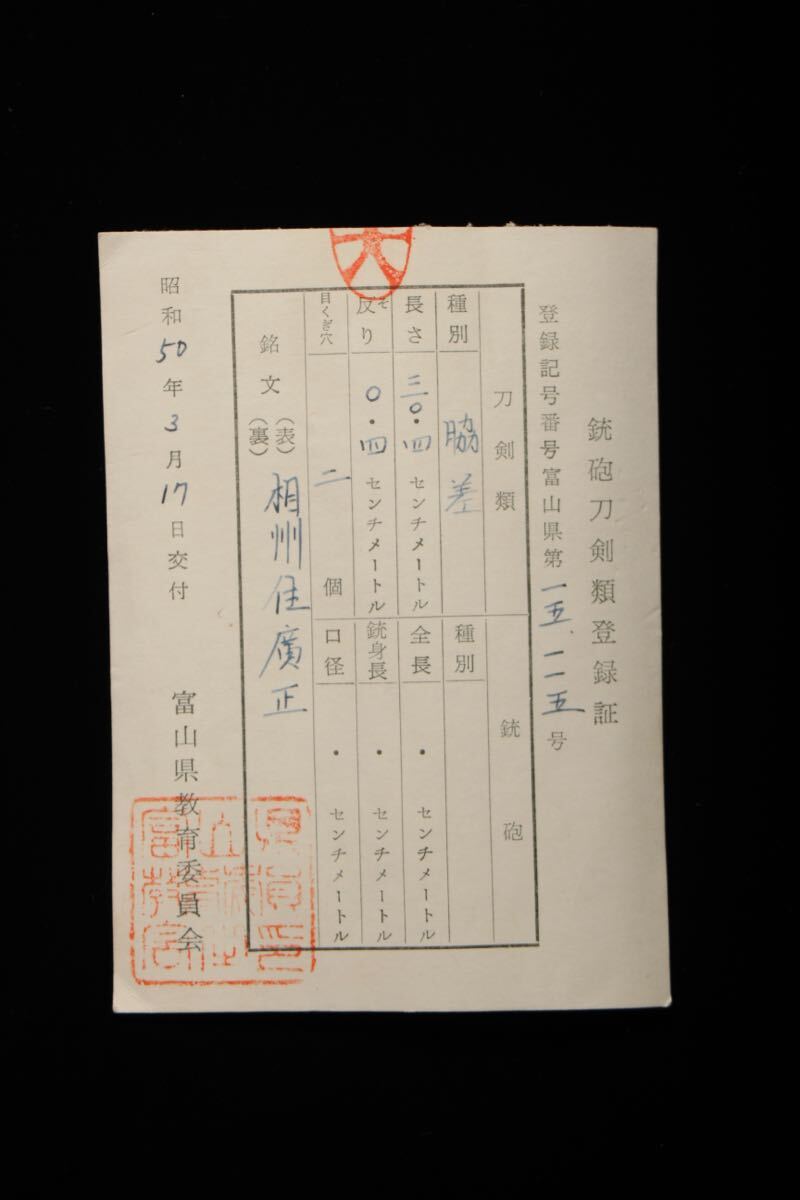 銃砲刀剣類登録証
登録記号番号富山県第一五一一五号
刀剣類
種別 脇差
長さ 三〇・四センチメートル
反り そ 〇・四センチメートル
目くぎ穴 二個
銃砲
種別
全長 ・センチメートル
銃身長 ・センチメートル
口径 ・センチメートル
銘文 (表) 相州住廣正
(裏)
昭和50年3月17日交付
富山県教育委員会